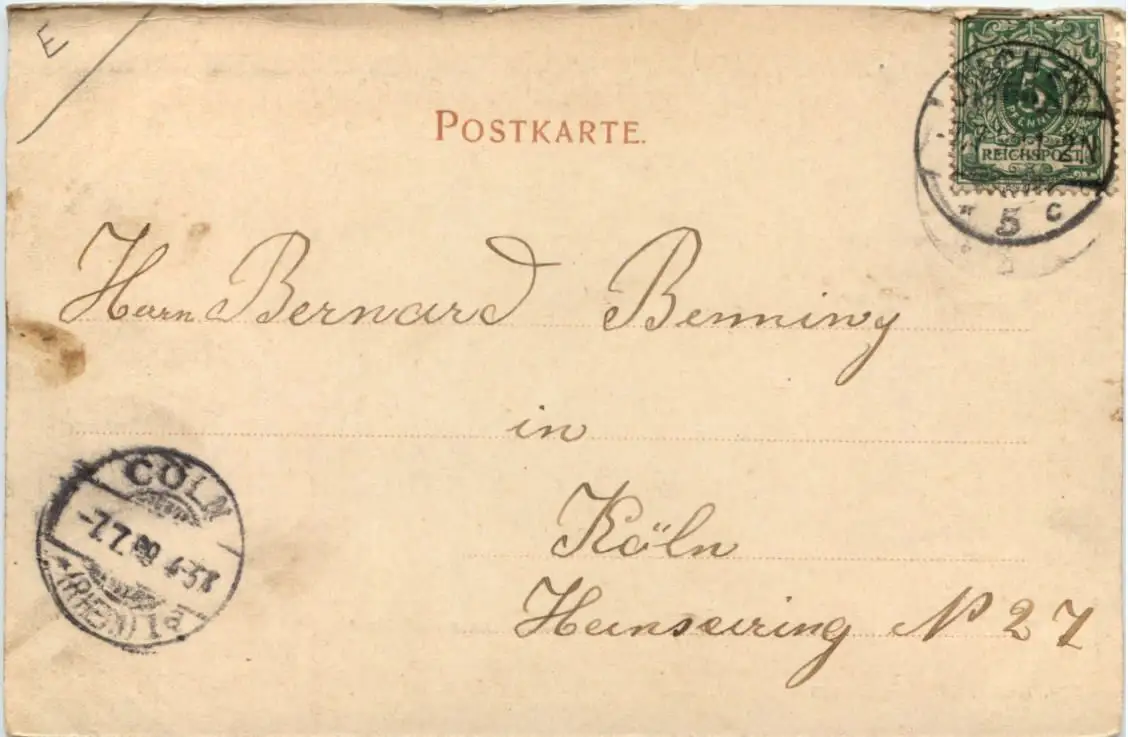 E
POSTKARTE.
5
PFENNIG
REICHSPOST
* 5 c
Herrn Bernard Benning
in
Köln
Hansaring N 27
CÖLN
-7.7.99 4-5N
(RHEIN) 1d